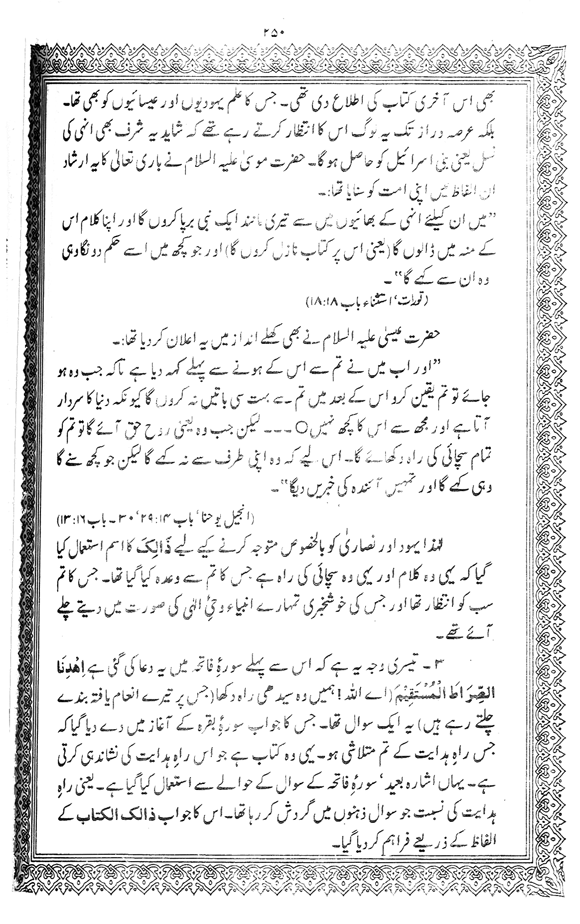 ۲۵۰
بھی اس آخری کتاب کی اطلاع دی تھی۔ جس کا علم یہودیوں اور عیسائیوں کو بھی تھا۔
بلکہ عرصہ دراز تک یہ لوگ اس کا انتظار کرتے رہے تھے کہ شاید یہ شرف بھی انہی کی
نسل یعنی بنی اسرائیل کو حاصل ہو گا۔ حضرت موسیٰ علیہ السلام نے باری تعالیٰ کا یہ ارشاد
ان الفاظ میں اپنی امت کو سنایا تھا:۔
”میں ان کیلئے انہی کے بھائیوں میں سے تیری مانند ایک نبی برپا کروں گا اور اپنا کلام اس
کے منہ میں ڈالوں گا (یعنی اس پر کتاب نازل کروں گا) اور جو کچھ میں اسے حکم دونگا وہی
وہ ان سے کہے گا“۔
(تورات‘ استثناء باب ۱۸:۱۸)
حضرت عیسیٰ علیہ السلام نے بھی کھلے انداز میں یہ اعلان کر دیا تھا:۔
”اور اب میں نے تم سے اس کے ہونے سے پہلے کہہ دیا ہے تاکہ جب وہ ہو
جائے تو تم یقین کرو اس کے بعد میں تم سے بہت سی باتیں نہ کروں گا کیونکہ دنیا کا سردار
آتا ہے اور مجھ سے اس کا کچھ نہیں ○ ۔۔۔ لیکن جب وہ یعنی روح حق آئے گا تو تم کو
تمام سچائی کی راہ دکھائے گا۔ اس لیے کہ وہ اپنی طرف سے نہ کہے گا لیکن جو کچھ سنے گا
وہی کہے گا اور تمہیں آئندہ کی خبریں دیگا“۔
(انجیل یوحنا‘ باب ۲۹:۱۴‘ ۳۰ ۔ باب ۱۳:۱۶)
لہٰذا یہود اور نصاریٰ کو بالخصوص متوجہ کرنے کے لیے ذَالِکَ کا اسم استعمال کیا
گیا کہ یہی وہ کلام اور یہی وہ سچائی کی راہ ہے جس کا تم سے وعدہ کیا گیا تھا۔ جس کا تم
سب کو انتظار تھا اور جس کی خوشخبری تمہارے انبیاء وحیٔ الٰہی کی صورت میں دیتے چلے
آئے تھے۔
۳ ۔ تیسری وجہ یہ ہے کہ اس سے پہلے سورۂ فاتحہ میں یہ دعا کی گئی ہے اِھْدِنَا
الصِّرَاطَ الْمُسْتَقِیْمَ (اے اللہ! ہمیں وہ سیدھی راہ دکھا (جس پر تیرے انعام یافتہ بندے
چلتے رہے ہیں) یہ ایک سوال تھا۔ جس کا جواب سورۂ بقرہ کے آغاز میں دے دیا گیا کہ
جس راہِ ہدایت کے تم متلاشی ہو۔ یہی وہ کتاب ہے جو اس راہِ ہدایت کی نشاندہی کرتی
ہے۔ یہاں اشارہ بعید‘ سورۂ فاتحہ کے سوال کے حوالے سے استعمال کیا گیا ہے۔ یعنی راہِ
ہدایت کی نسبت جو سوال ذہنوں میں گردش کر رہا تھا۔ اس کا جواب ذالک الکتاب کے
الفاظ کے ذریعے فراہم کر دیا گیا۔